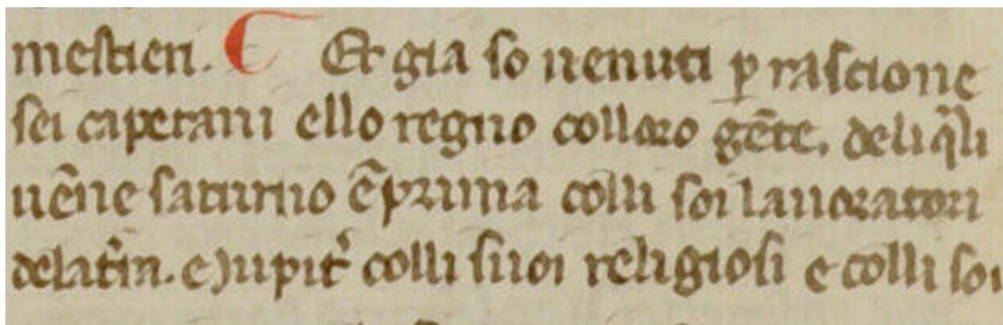 mestieri. Et gia so uenuti ꝑ rascione
sei capetani ello regno colloro gēte. deli q̄li
uēne saturno ēprima colli soi lauoratori
delat̓ra. e Jupit̓ colli suoi religiosi e colli soi